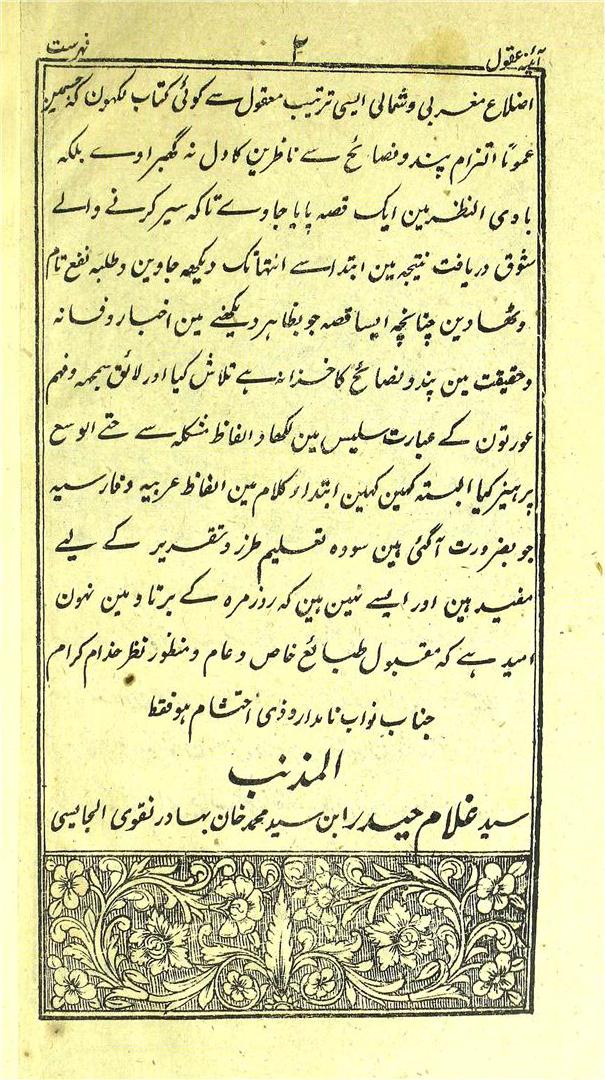 آئینہ عقول ۳ فہرست
اضلاع مغربی و شمالی ایسی ترتیب معقول سے کوئی کتاب لکھون کہ جسمین
عموماً التزام پند و نصائح سے ناظرین کا دل نہ گھبراوے بلکہ
بادی النظر مین ایک قصہ پایا جاوے تاکہ سیر کرنے والے
شوق دریافت نتیجہ مین ابتدا سے انتہا تک دیکھہ جاوین و طلبہ نفع تام
وٹھادین چنانچہ ایسا قصہ جو بظاہر دیکھنے مین اخبار و فسانہ
و حقیقت مین پند و نصائح کا خزانہ ہے تلاش کیا اور لائق سمجہہ و فہم
عورتون کے عبارت سلیس مین لکھا و الفاظ مشکلہ سے حتے الوسع
پرہیز کیا البتہ کہین کہین ابتدار کلام مین الفاظ عربیہ و فارسیہ
جو بضرورت آگئی ہین سو وہ تعلیم طرز و تقریر کے لیے
مفید ہین اور ایسے نہین ہین کہ روزمرہ کے برتاو مین نہون
امید ہے کہ مقبول طبائع خاص و عام و منظور نظر خدام کرام
جناب نواب نامدار و ذی احتشام ہو فقط
المذنب
سید غلام حیدر ابن سید محمد خان بہادر نقوی الجایسی